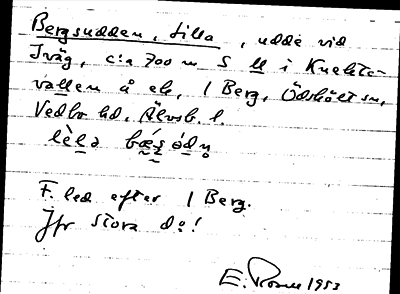 Bergsudden, Lilla, udde vid
Iväg, c:a 700 m S ll i Knekte-
vallen å ek, 1 Berg, Ödskölt sn,
Vedbo hd, Älvsb. l.
F. led efter 1 Berg.
Jfr Stora d:o!
E. 1953